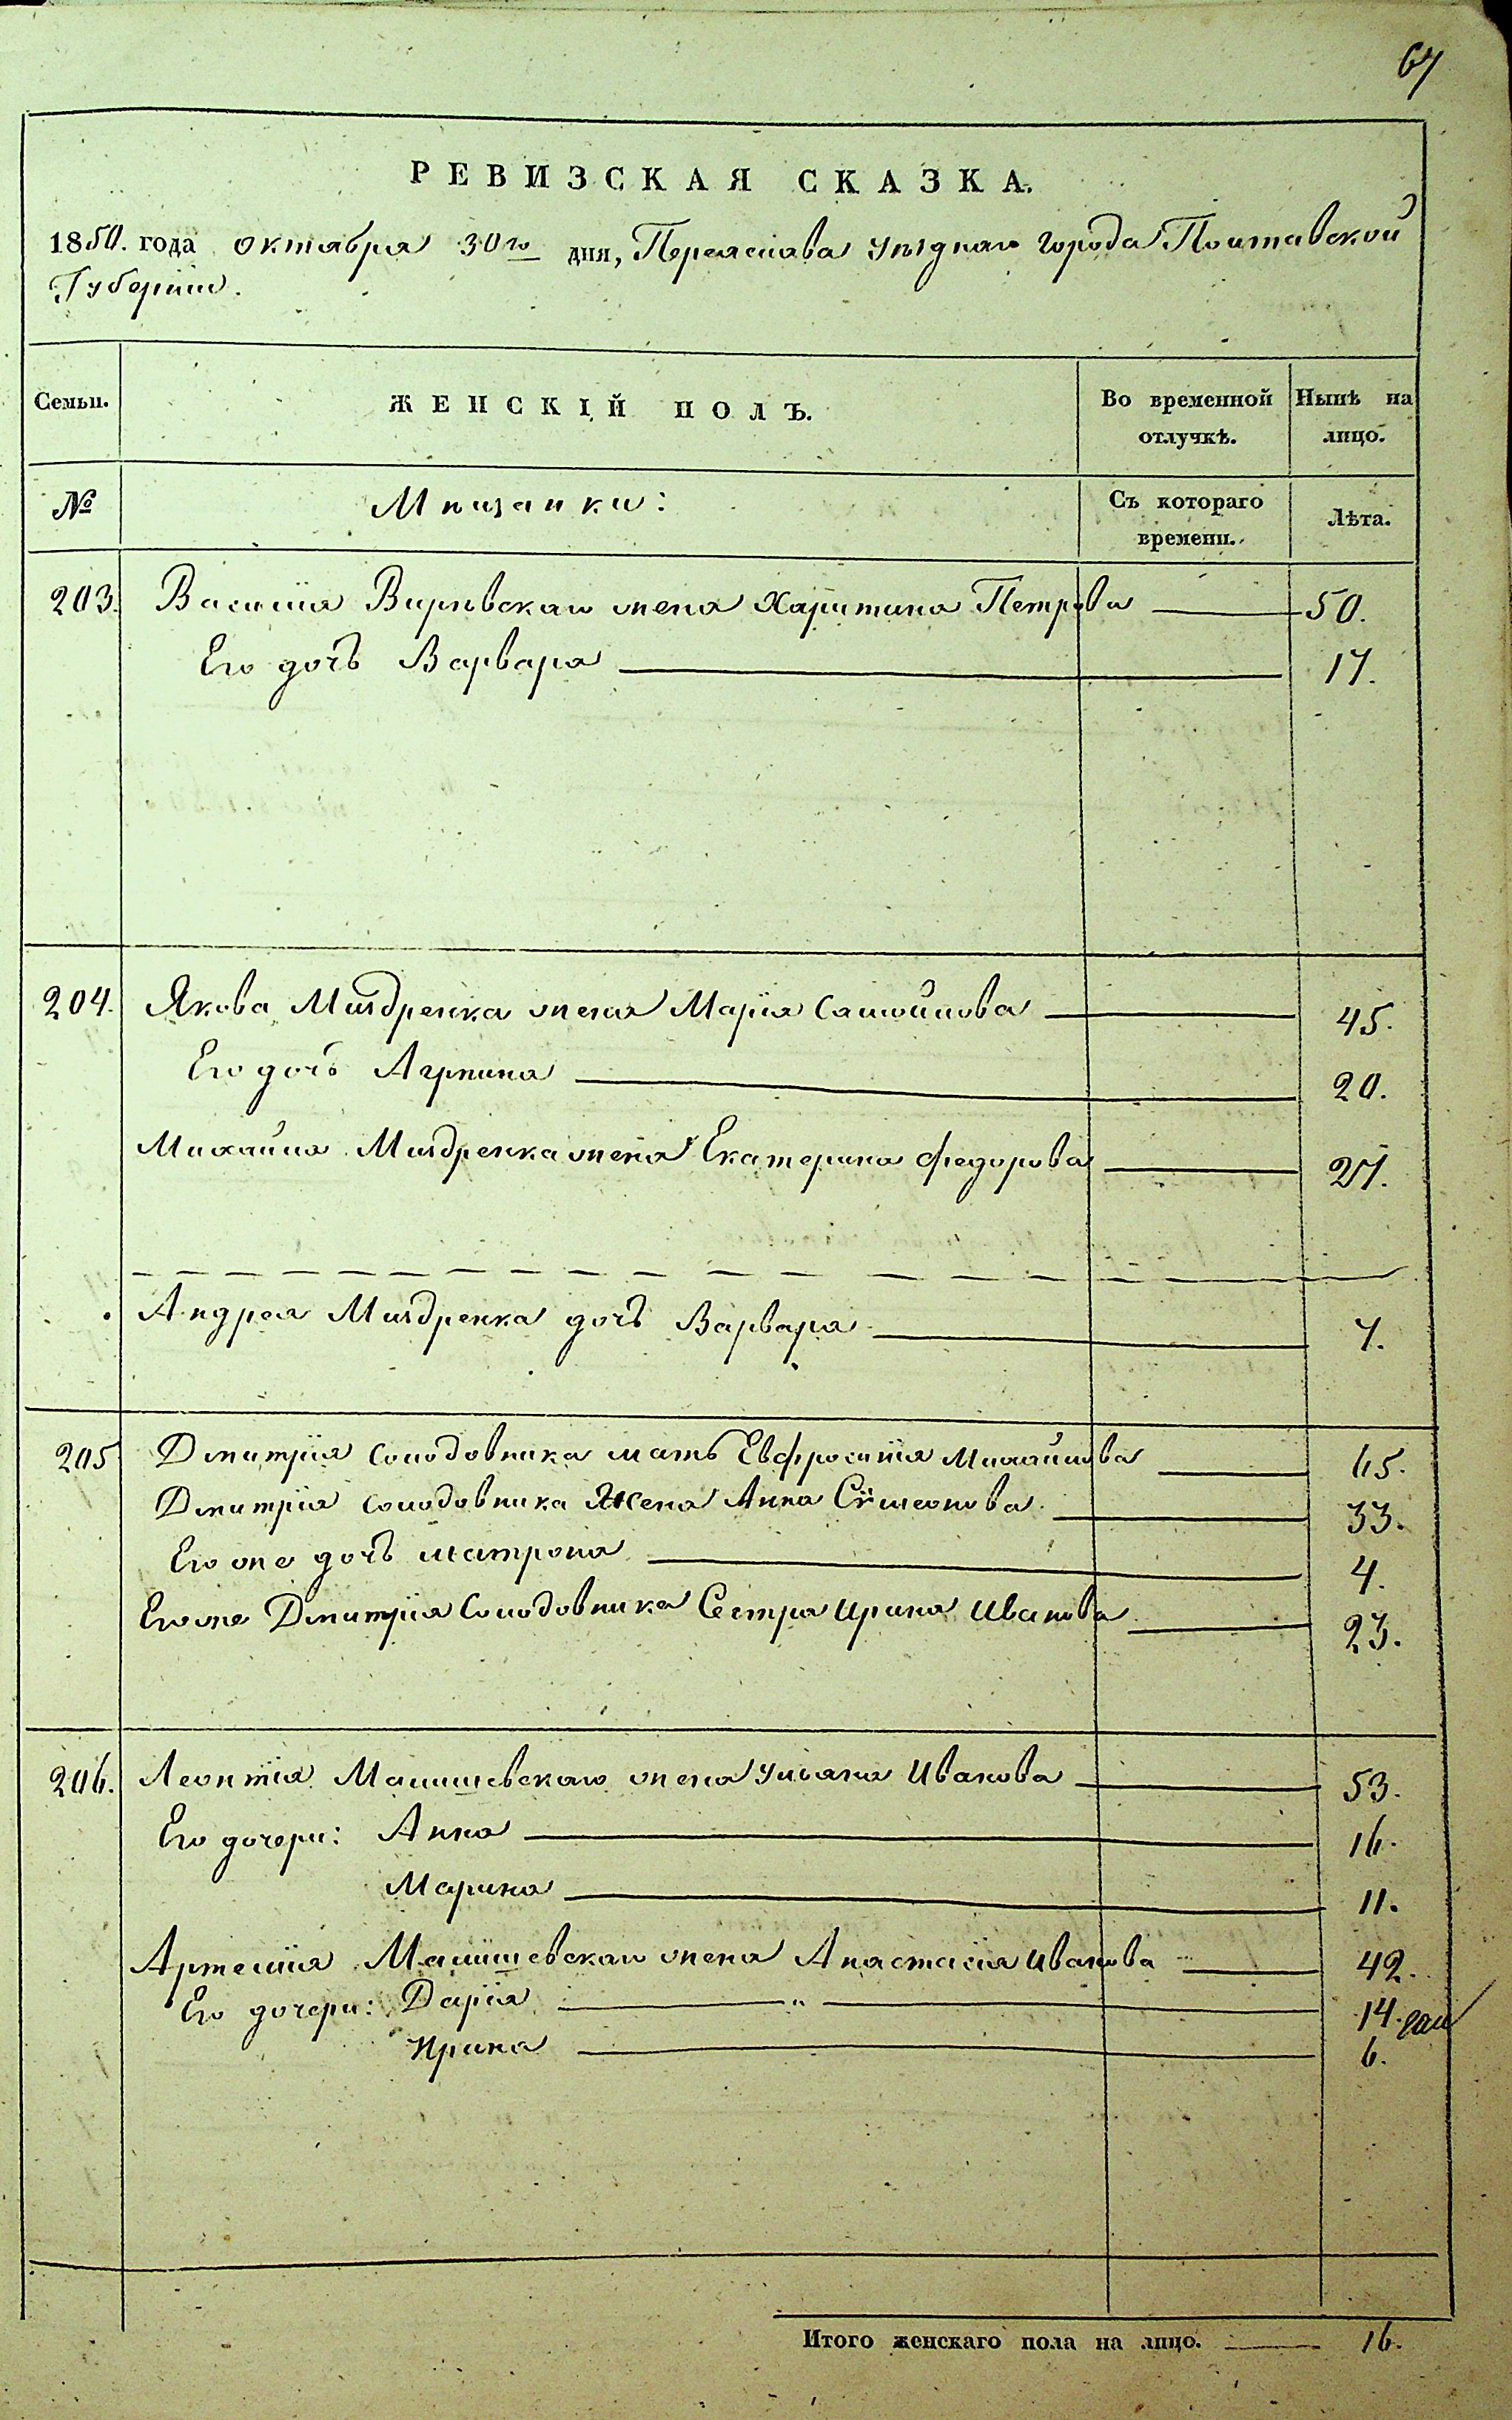 67
РЕВИЗСКАЯ СКАЗКА.
1850. года октября 30го дня, Переяслава уѣзднаго города Полтавской
Губерніи.
Семьи. ЖЕНСКІЙ ПОЛЪ. Во временной отлучкѣ. Нынѣ на лицо.
№ Мѣщанки: Съ котораго времени. Лѣта.
203. Василія Вирѣвскаго жена Харитина Петрова 50.
Его дочь Варвара 17.
204. Якова Миздренка жена Марія Самойлова 45.
Его дочь Агрпина 20.
Михайла Миздренка жена Екатерина Федорова 27.
Андрея Миздренка дочь Варвара 7.
205 Дмитрія Солодовника мать Евфросинія Михайлова 65.
Дмитрія Солодовника Жена Анна Сѵмеонова 33.
Его же дочь Матрона 4.
Его же Дмитрія Солодовника Сестра Ирина Иванова 23.
206. Леонтія Малишевскаго жена Ульяна Иванова 53.
Его дочери: Анна 16.
Марина 11.
Артемія Малишевскаго жена Анастасія Иванова 42.
Его дочери: Дарія " 14.
Ирина 6.
Итого женскаго пола на лицо. 16.